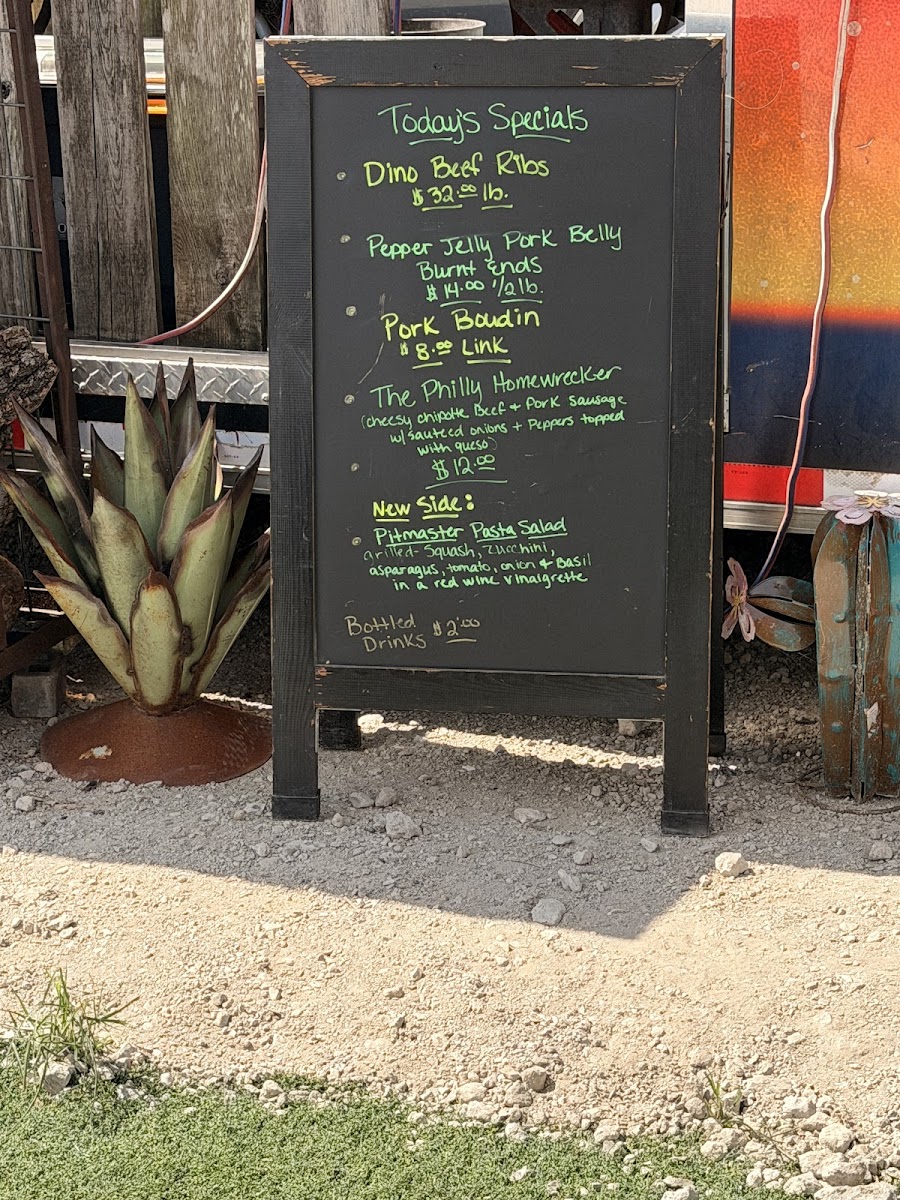 Today's Specials
Dino Beef Ribs
$32.00 lb.
Pepper Jelly Pork Belly
Burnt Ends
$14.00 1/2 lb.
Pork Boudin
$8.00 Link
The Philly Homewrecker
(cheesy chipotle Beef + Pork Sausage
w/ sauteed onions + Peppers topped
with queso)
$12.00
New Side:
Pitmaster Pasta Salad
grilled- Squash, Zucchini,
asparagus, tomato, onion & Basil
in a red wine vinaigrette
Bottled $2.00
Drinks